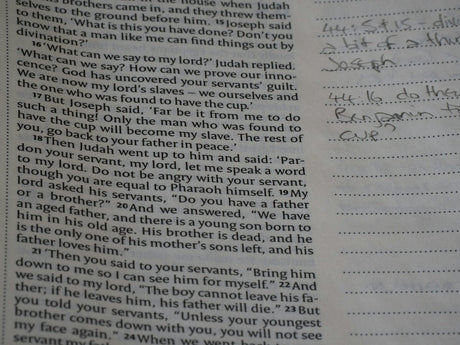 in the house when Judah
brothers came in, and they threw them-
selves to the ground before him. 15 Joseph said
to them, 'What is this you have done? Don't you
know that a man like me can find things out by
divination?'
16 'What can we say to my lord?' Judah replied.
'What can we say? How can we prove our inno-
cence? God has uncovered your servants' guilt.
We are now my lord's slaves – we ourselves and
the one who was found to have the cup.'
17 But Joseph said, 'Far be it from me to do
such a thing! Only the man who was found to
have the cup will become my slave. The rest of
you, go back to your father in peace.'
18 Then Judah went up to him and said: 'Par-
don your servant, my lord, let me speak a word
to my lord. Do not be angry with your servant,
though you are equal to Pharaoh himself. 19 My
lord asked his servants, "Do you have a father
or a brother?" 20 And we answered, "We have
an aged father, and there is a young son born to
him in his old age. His brother is dead, and he
is the only one of his mother's sons left, and his
father loves him."
21 'Then you said to your servants, "Bring him
down to me so I can see him for myself." 22 And
we said to my lord, "The boy cannot leave his fa-
ther; if he leaves him, his father will die." 23 But
you told your servants, "Unless your youngest
brother comes down with you, you will not see
my face again." 24 When we went back
servant my
44:5+15 - div
a bit of a
Joseph
44:16 do
Benjamin
cup?